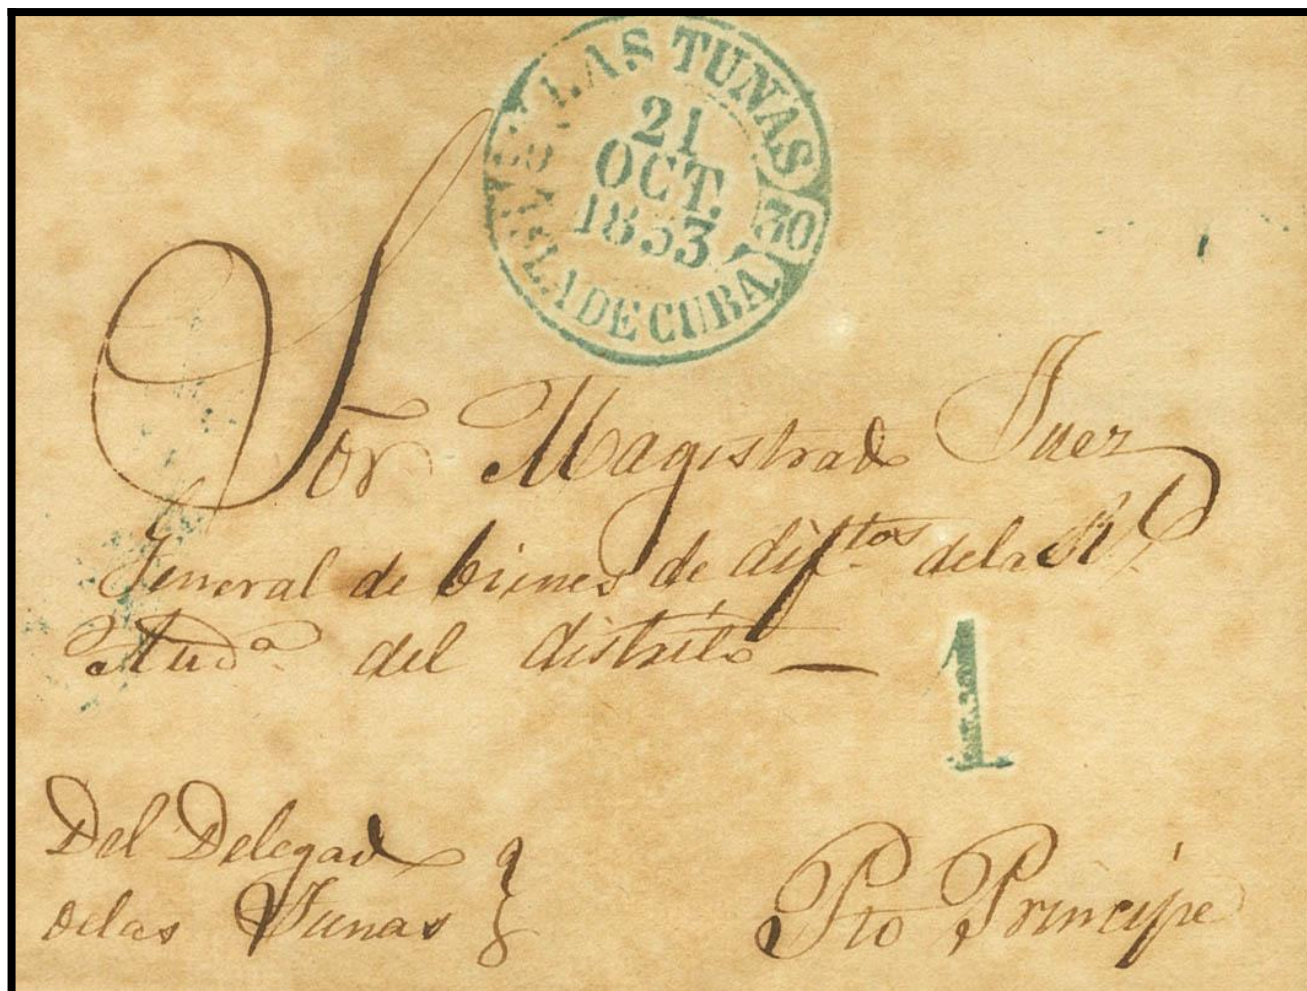 LAS TUNAS
21
OCT.
1853
30
ISLA DE CUBA.
Sor Magistrado Juez
Jeneral de bienes de dif.tos dela Rl
Aud.a del distrito —
1
Del Delegado
delas Tunas
Pto Principe